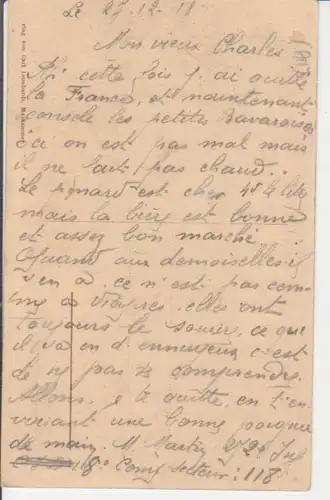 Le 27-12-18
Mon vieux Charles
cette fois j'ai quitté
la France, et maintenant
console les petites Bavaroises
ici on est pas mal mais
il ne fait pas chaud..
Le pinard est cher 4f le litre
mais la bière est bonne
et assez bon marché.
Quand aux demoiselles il
y en a, ce n'est pas com-
me a elles ont
toujours le sourire, ce qui
il y a en d'ennuyeux c'est
de ne pas comprendre.
Allons, je te quitte, en t'en-
voyant une bonne poignée
de main. M. Martin 92e Inf
18e Comp Secteur: 118
Verlag von Carl Leonhardt,